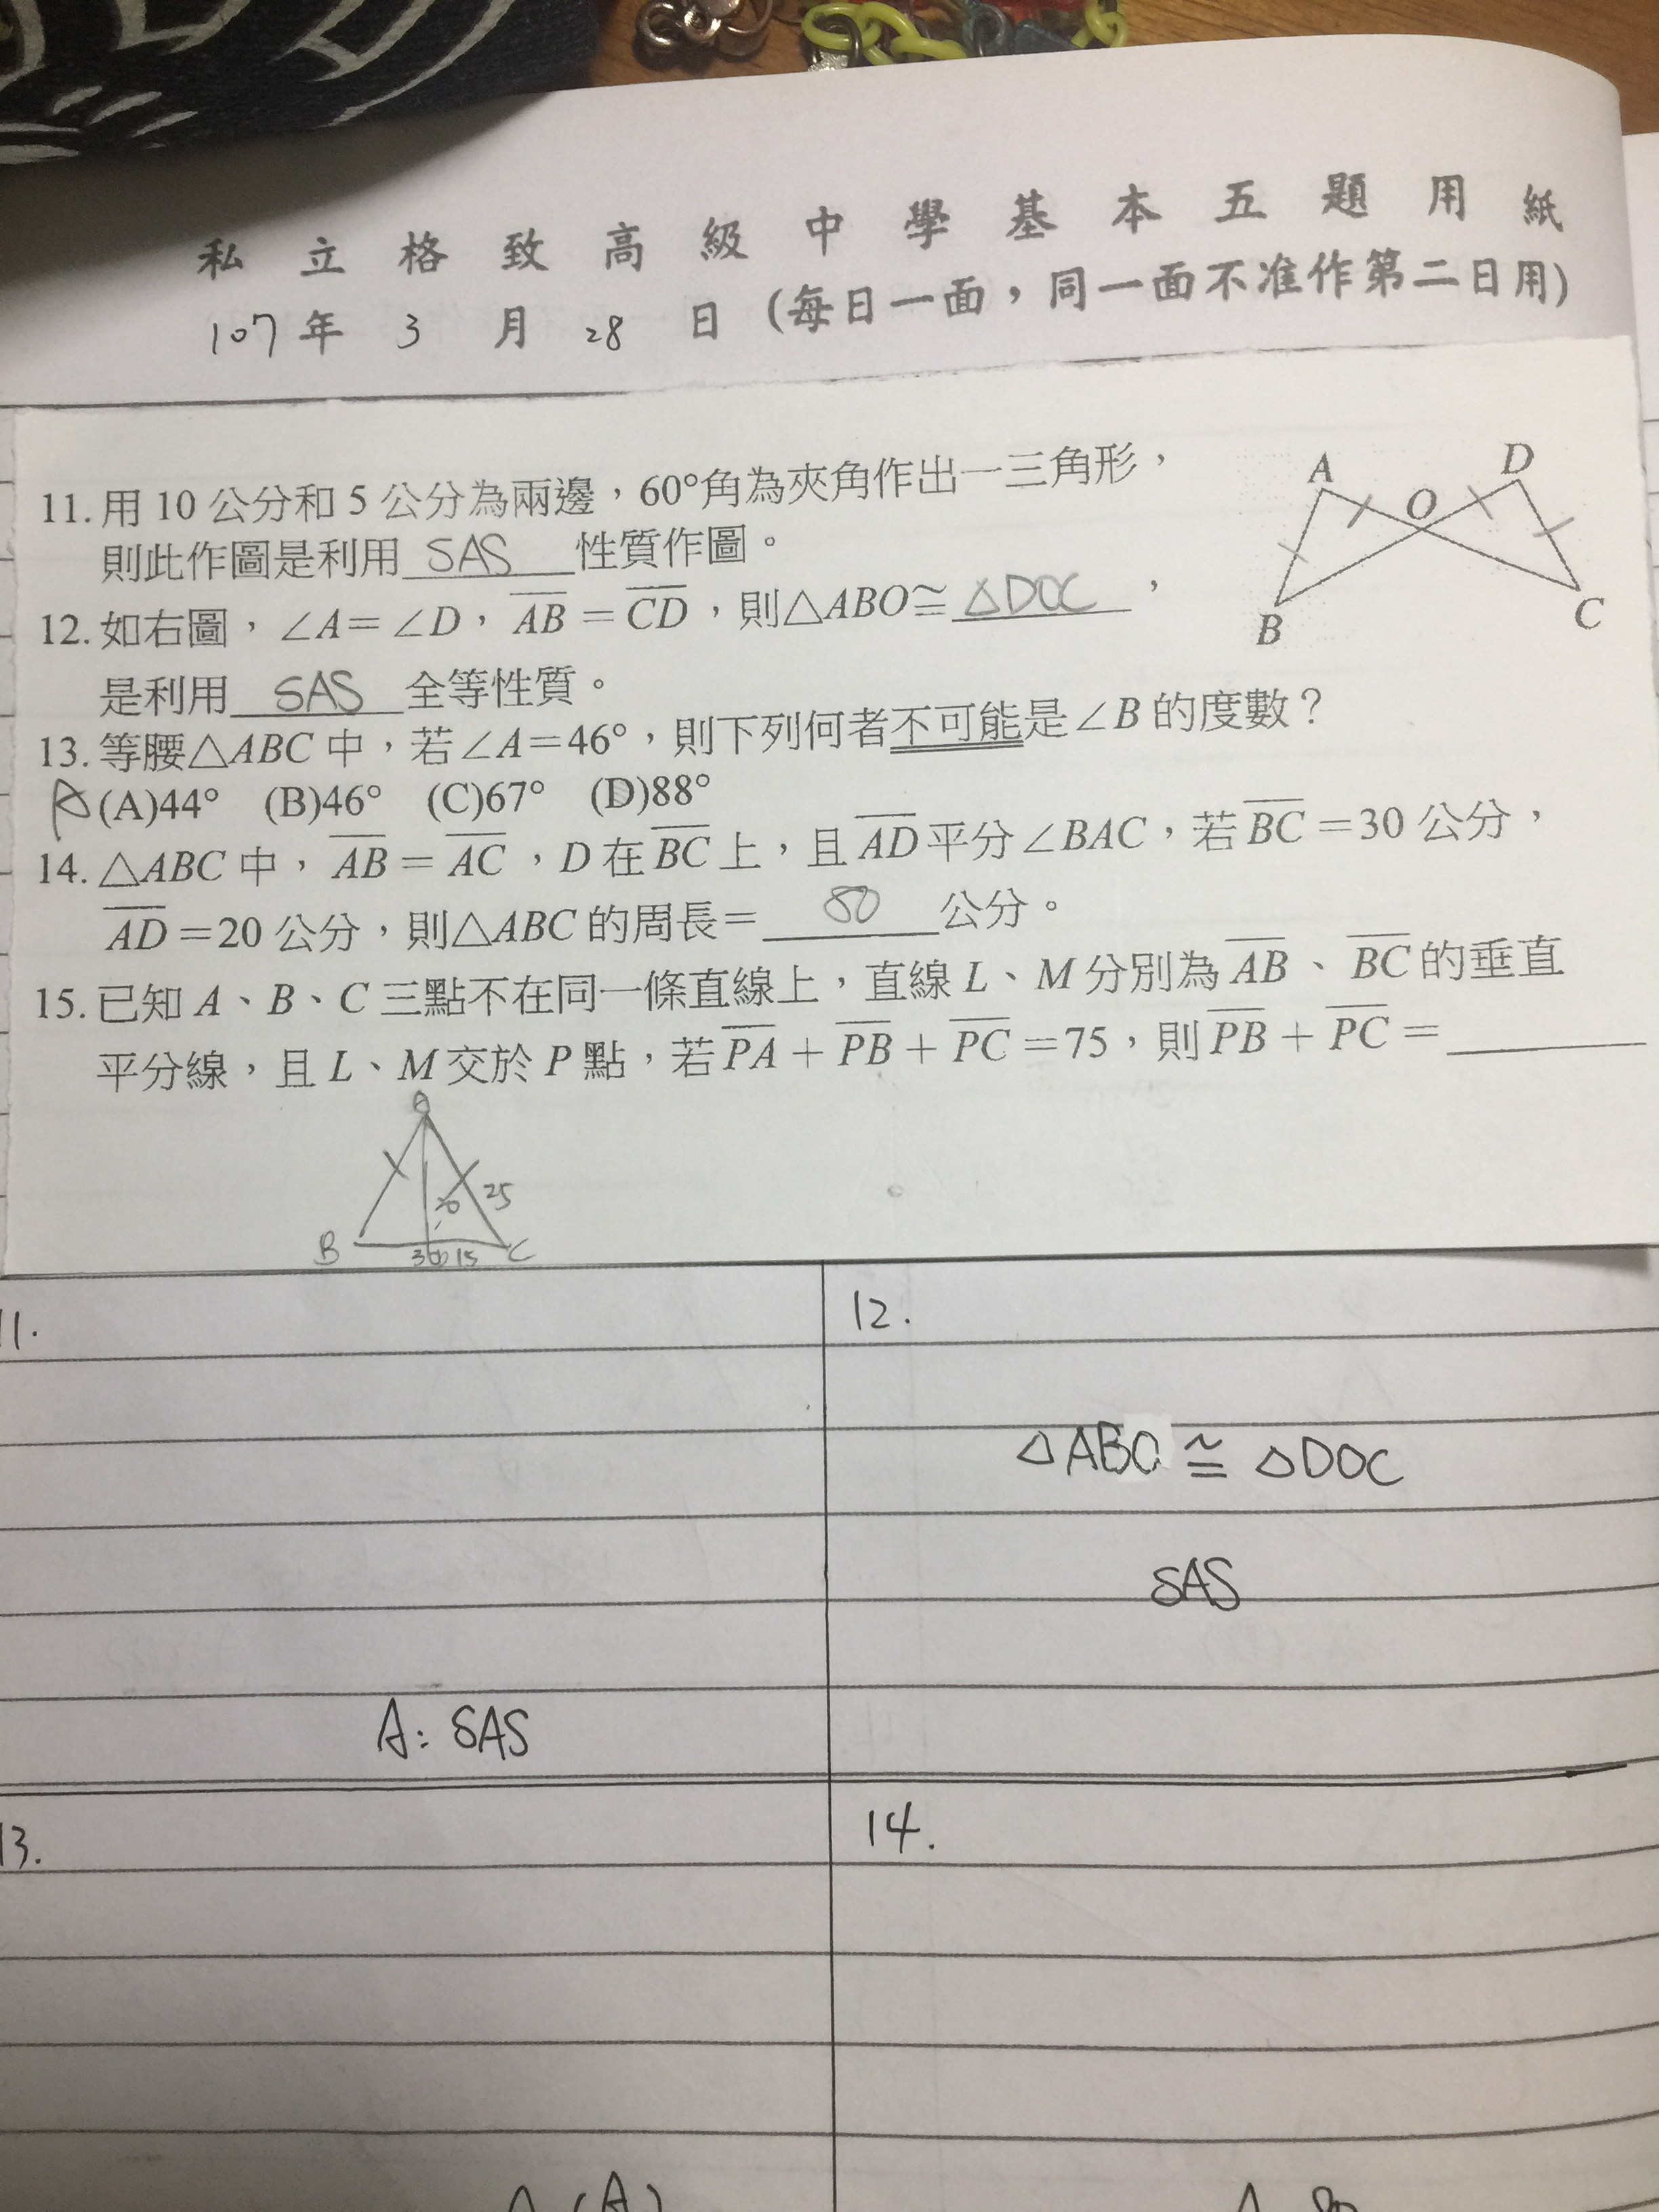 私立格致高級中學基本五題用紙
107年 3月 28日 (每日一面，同一面不准作第二日用)
11. 用 10 公分和 5 公分為兩邊，60°角為夾角作出一三角形，
則此作圖是利用 SAS 性質作圖。
12. 如右圖，∠A=∠D，AB=CD，則△ABO≅ △DOC ，
是利用 SAS 全等性質。
A D O B C
13. 等腰△ABC 中，若∠A=46°，則下列何者不可能是∠B 的度數？
A (A)44° (B)46° (C)67° (D)88°
14. △ABC 中，AB=AC，D 在 BC 上，且 AD 平分∠BAC，若 BC=30 公分，
AD=20 公分，則△ABC 的周長= 80 公分。
15. 已知 A、B、C 三點不在同一條直線上，直線 L、M 分別為 AB、BC 的垂直
平分線，且 L、M 交於 P 點，若 PA+PB+PC=75，則 PB+PC=
A
20 25
B 30 15 C
11.
A: SAS
12.
△ABO ≅ △DOC
SAS
13.
14.